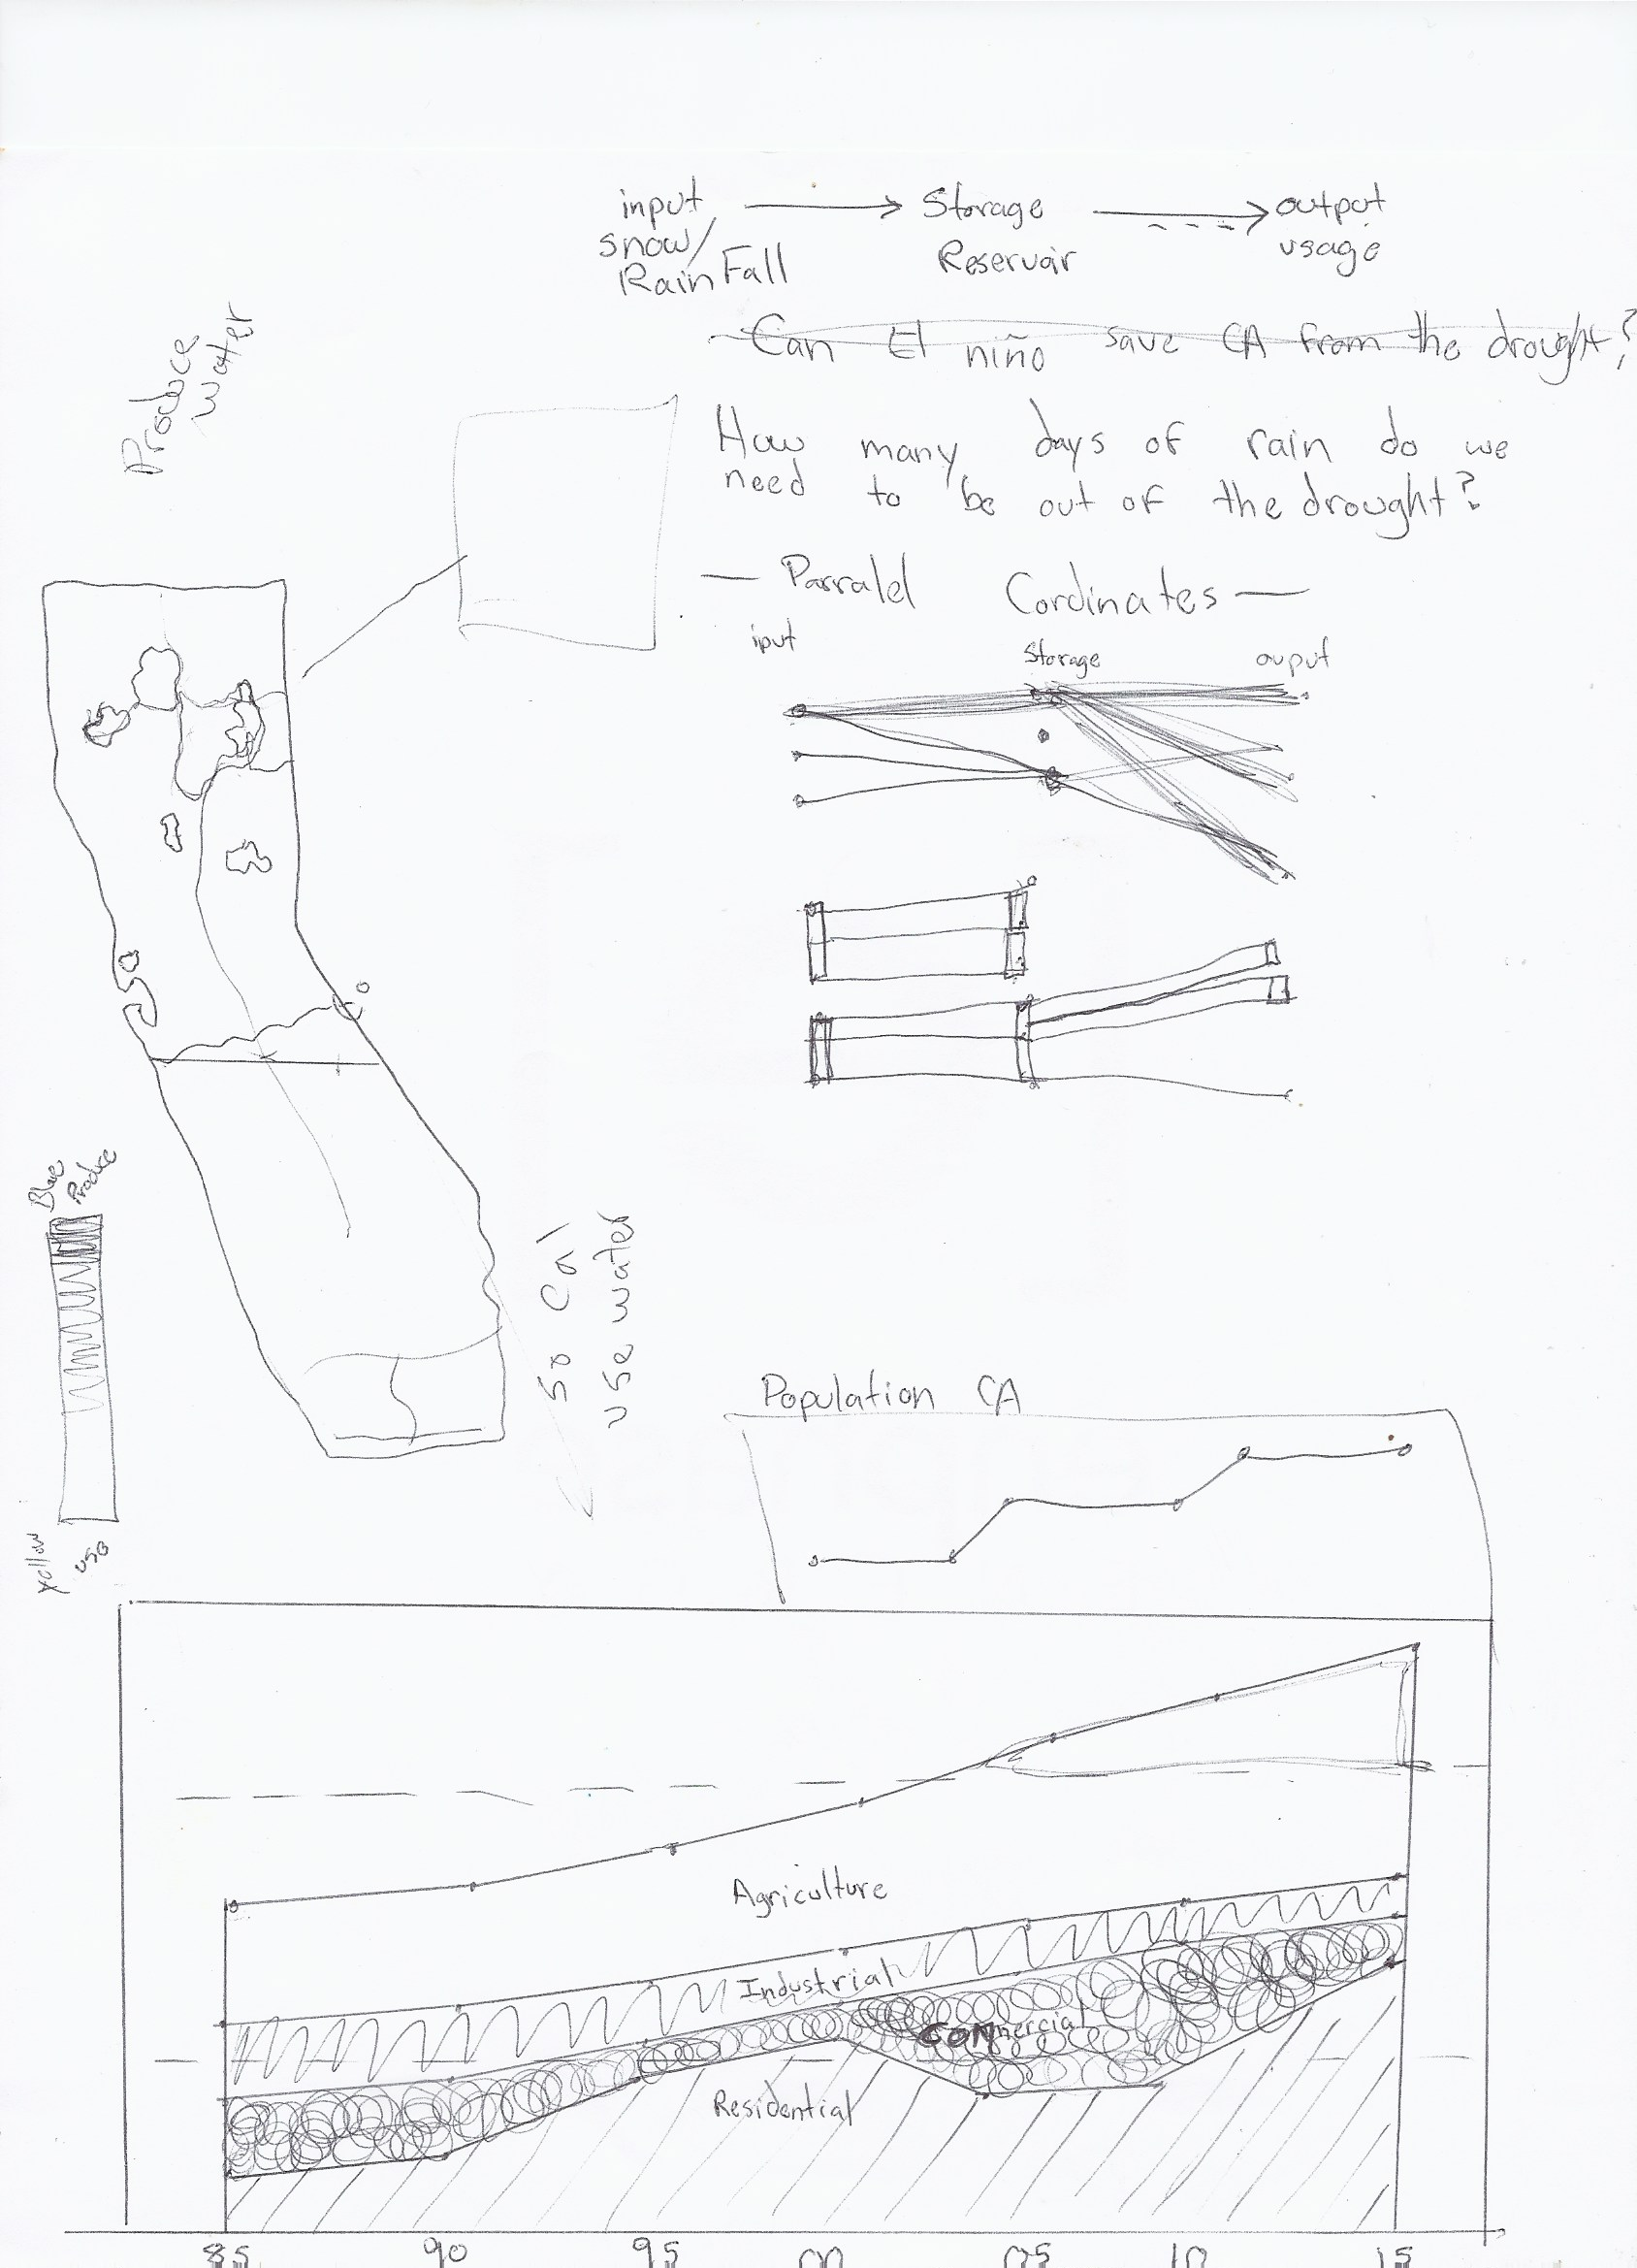 input
snow/
RainFall
Storage
Reservoir
output
usage
Can El niño save CA from the drought?
How many days of rain do we
need to be out of the drought?
Produce
water
— Parralel Cordinates —
iput
Storage
ouput
Blue
Produce
yellow
use
So Cal
use water
Population CA
Agriculture
Industrial
Commercial
Residential
85 90 95 00 05 10 15